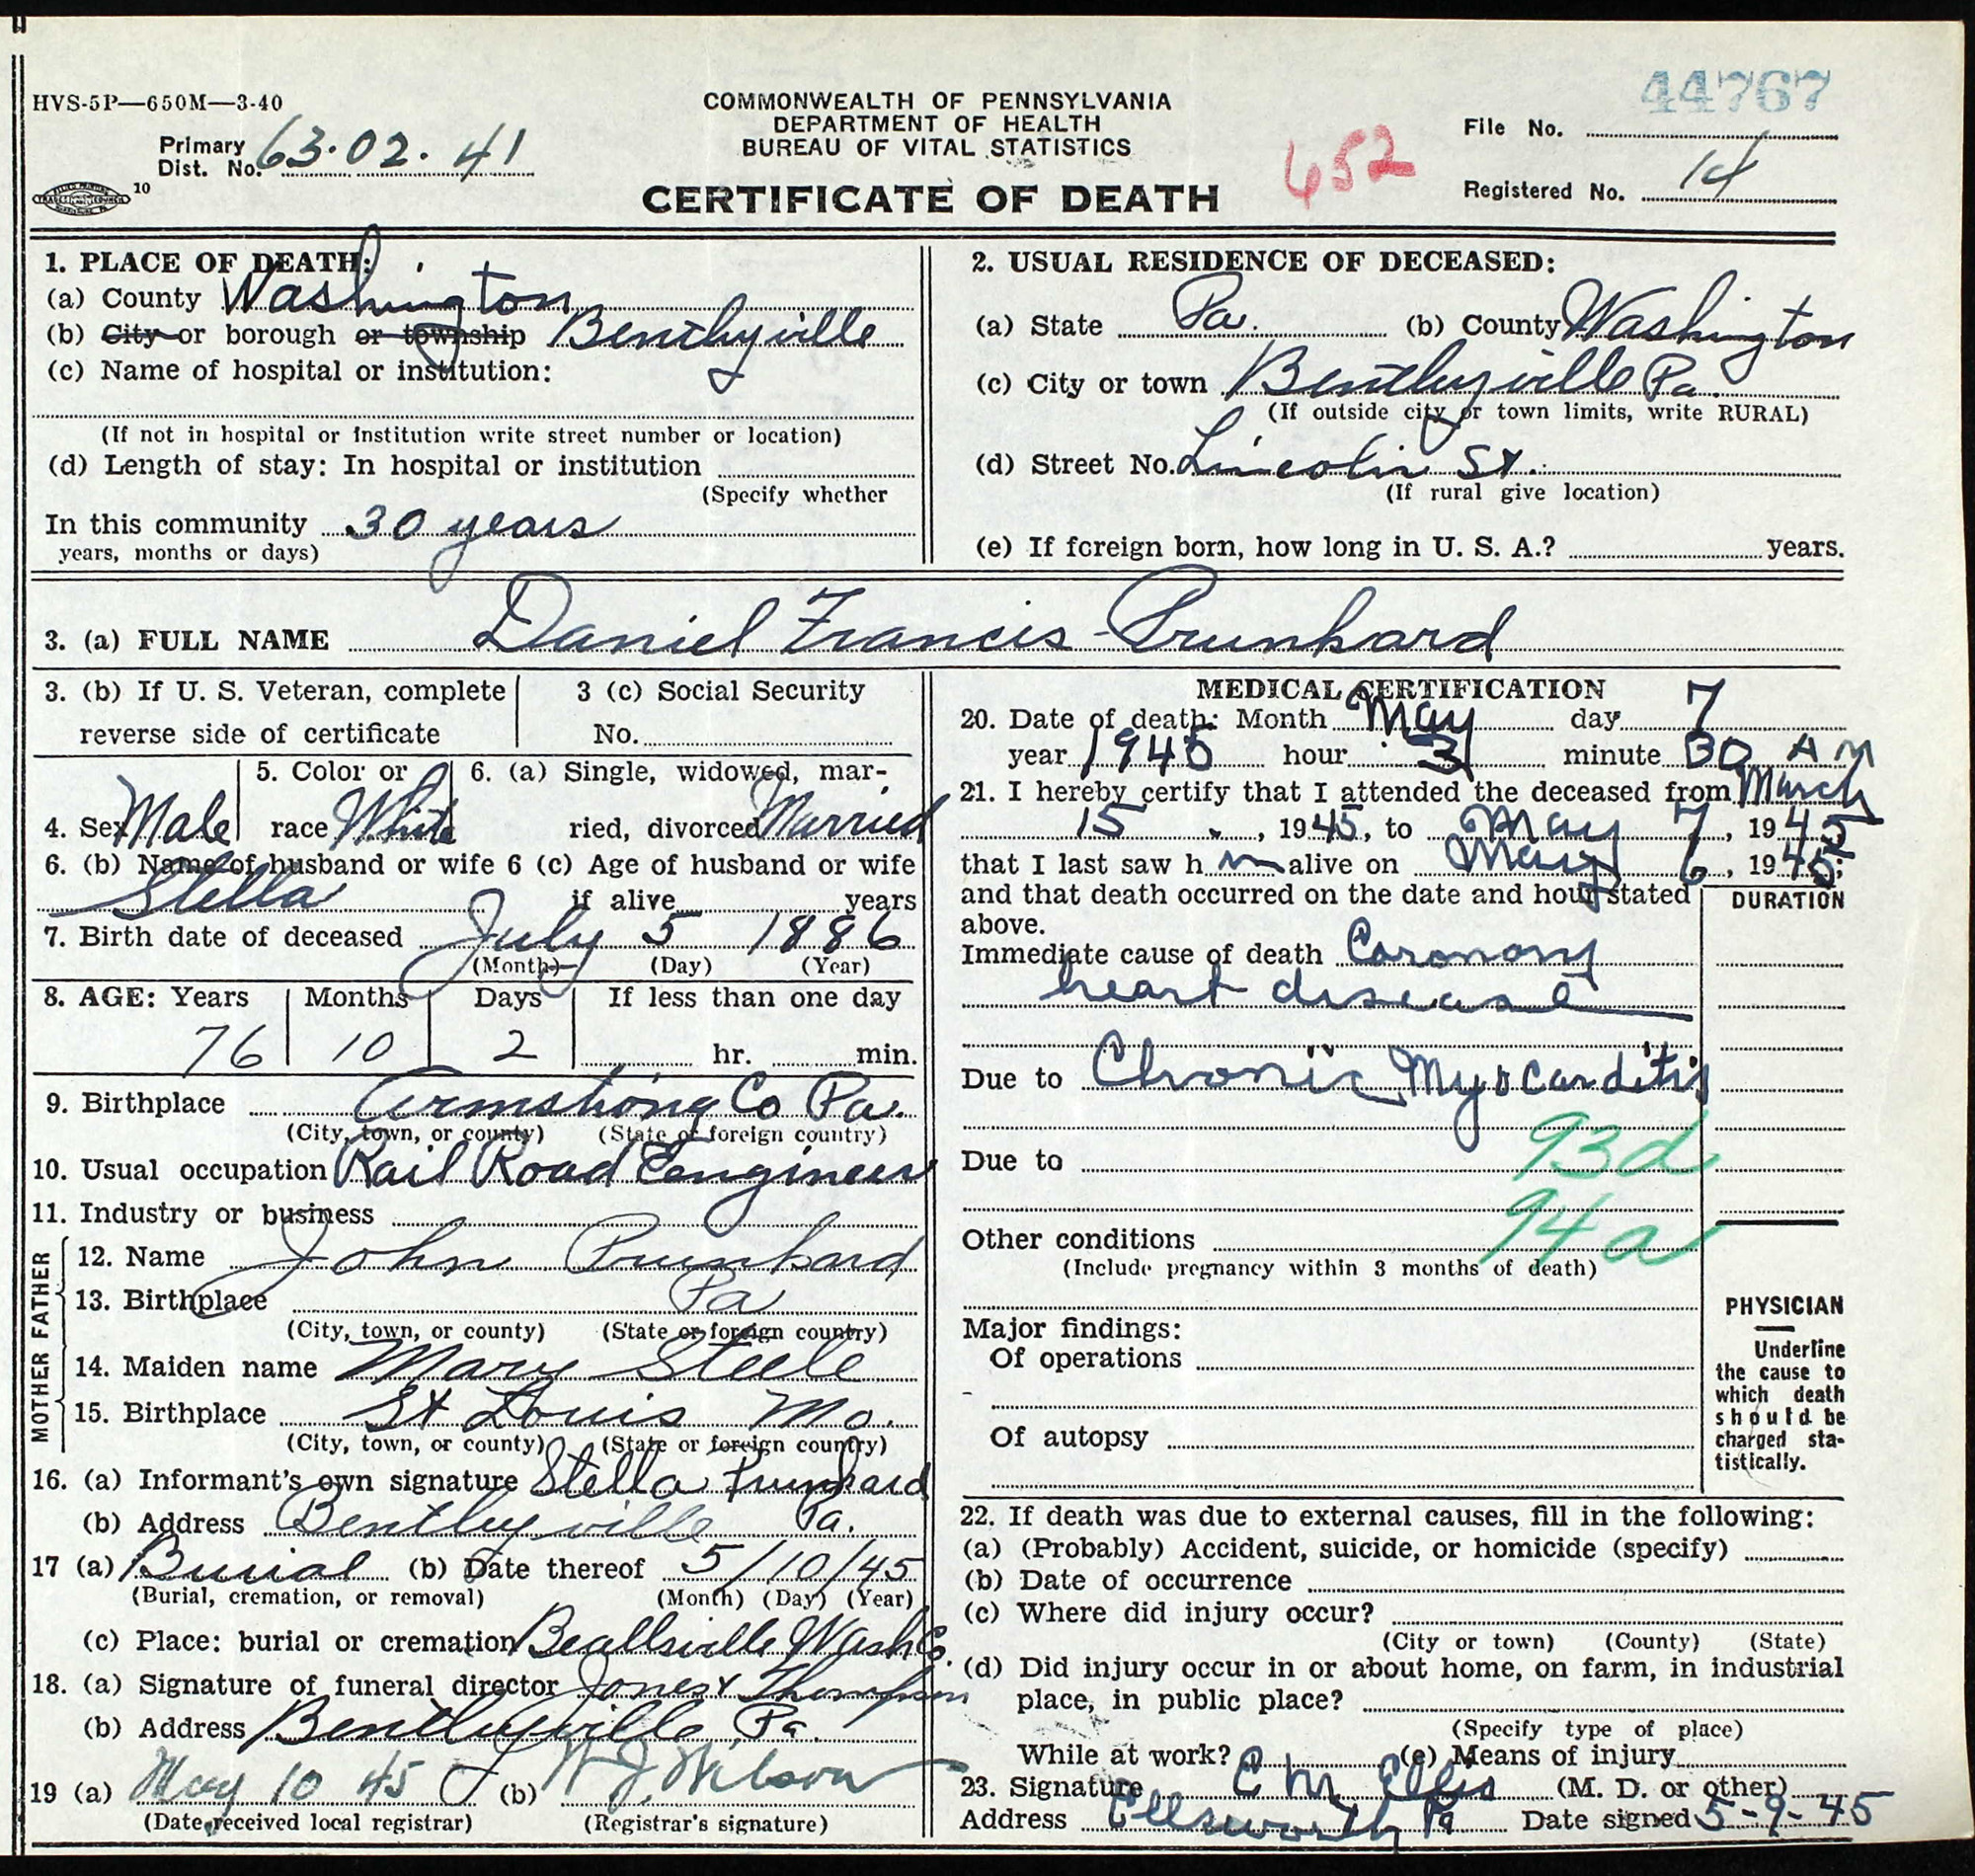 44767
HVS-5P—650M—3-40
COMMONWEALTH OF PENNSYLVANIA
DEPARTMENT OF HEALTH
BUREAU OF VITAL STATISTICS
CERTIFICATE OF DEATH
Primary Dist. No. 63.02.41
10
652
File No.
Registered No. 14
1. PLACE OF DEATH:
(a) County Washington
(b) City or borough or township Bentleyville
(c) Name of hospital or institution:
(If not in hospital or institution write street number or location)
(d) Length of stay: In hospital or institution
(Specify whether
In this community 30 years
years, months or days)
2. USUAL RESIDENCE OF DECEASED:
(a) State Pa. (b) County Washington
(c) City or town Bentleyville Pa.
(If outside city or town limits, write RURAL)
(d) Street No. Lincoln St.
(If rural give location)
(e) If foreign born, how long in U. S. A.? years.
3. (a) FULL NAME Daniel Francis Prunkard
3. (b) If U. S. Veteran, complete
reverse side of certificate
3 (c) Social Security
No.
4. Sex Male
5. Color or
race White
6. (a) Single, widowed, mar-
ried, divorced Married
6. (b) Name of husband or wife 6 (c) Age of husband or wife
Stella if alive years
7. Birth date of deceased July 5 1886
(Month) (Day) (Year)
8. AGE: Years Months Days If less than one day
76 10 2 hr. min.
9. Birthplace Armstrong Co Pa.
(City, town, or county) (State or foreign country)
10. Usual occupation Rail Road Engineer
11. Industry or business
MOTHER FATHER
12. Name John Prunkard
13. Birthplace Pa
(City, town, or county) (State or foreign country)
14. Maiden name Mary Steele
15. Birthplace St Louis Mo.
(City, town, or county) (State or foreign country)
16. (a) Informant's own signature Stella Prunkard
(b) Address Bentleyville Pa.
17 (a) Burial (b) Date thereof 5/10/45
(Burial, cremation, or removal) (Month) (Day) (Year)
(c) Place: burial or cremation Beallsville Wash Co.
18. (a) Signature of funeral director Jones & Thompson
(b) Address Bentleyville, Pa.
19 (a) May 10 45 (b) W. J. Wilson
(Date received local registrar) (Registrar's signature)
MEDICAL CERTIFICATION
20. Date of death: Month May day 7
year 1945 hour 3 minute 30 AM
21. I hereby certify that I attended the deceased from March
15, 1945, to May 7, 1945
that I last saw h im alive on May 6, 1945;
and that death occurred on the date and hour stated
above.
DURATION
Immediate cause of death Coronary
heart disease
Due to Chronic Myocarditis
93d
Due to
94a
Other conditions
(Include pregnancy within 3 months of death)
Major findings:
Of operations
Of autopsy
PHYSICIAN
Underline
the cause to
which death
should be
charged sta-
tistically.
22. If death was due to external causes, fill in the following:
(a) (Probably) Accident, suicide, or homicide (specify)
(b) Date of occurrence
(c) Where did injury occur?
(City or town) (County) (State)
(d) Did injury occur in or about home, on farm, in industrial
place, in public place?
(Specify type of place)
While at work? (e) Means of injury
23. Signature E M Ellis (M. D. or other)
Address Ellsworth Pa Date signed 5-9-45